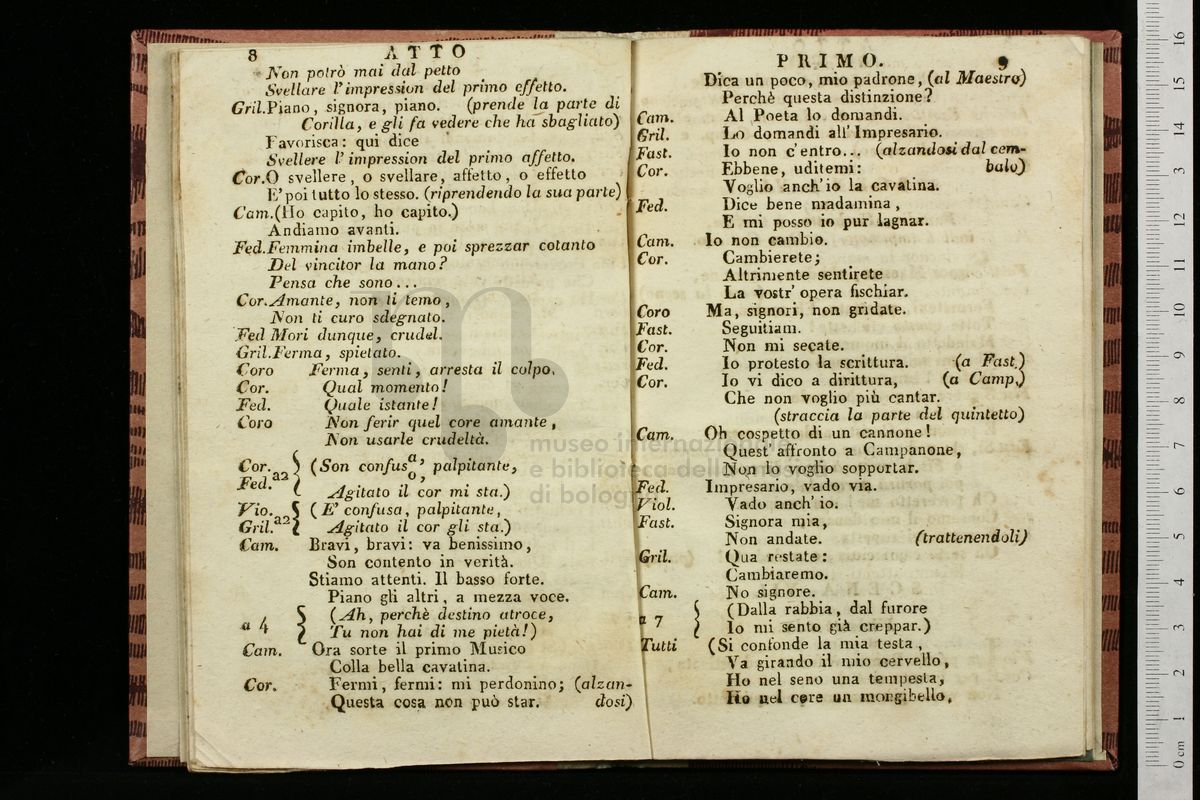 8 ATTO
Non potrò mai dal petto
Svellare l'impression del primo effetto.
Gril. Piano, signora, piano. (prende la parte di
Corilla, e gli fa vedere che ha sbagliato)
Favorisca: qui dice
Svellere l'impression del primo affetto.
Cor. O svellere, o svellare, affetto, o effetto
E' poi tutto lo stesso. (riprendendo la sua parte)
Cam. (Ho capito, ho capito.)
Andiamo avanti.
Fed. Femmina imbelle, e poi sprezzar cotanto
Del vincitor la mano?
Pensa che sono...
Cor. Amante, non ti temo,
Non ti curo sdegnato.
Fed Mori dunque, crudel.
Gril. Ferma, spietato.
Coro Ferma, senti, arresta il colpo.
Cor. Qual momento!
Fed. Quale istante!
Coro Non ferir quel core amante,
Non usarle crudeltà.
Cor. (Son confus a/o, palpitante,
Fed. a2 Agitato il cor mi sta.)
Vio. (E' confusa, palpitante,
Gril. a2 Agitato il cor gli sta.)
Cam. Bravi, bravi: va benissimo,
Son contento in verità.
Stiamo attenti. Il basso forte.
Piano gli altri, a mezza voce.
a 4 (Ah, perchè destino atroce,
Tu non hai di me pietà!)
Cam. Ora sorte il primo Musico
Colla bella cavatina.
Cor. Fermi, fermi: mi perdonino; (alzan-
Questa cosa non può star. dosi)
PRIMO. 9
Dica un poco, mio padrone, (al Maestro)
Perchè questa distinzione?
Cam. Al Poeta lo domandi.
Gril. Lo domandi all'Impresario.
Fast. Io non c'entro... (alzandosi dal cem-
Cor. Ebbene, uditemi: balo)
Voglio anch'io la cavatina.
Fed. Dice bene madamina,
E mi posso io pur lagnar.
Cam. Io non cambio.
Cor. Cambierete;
Altrimente sentirete
La vostr' opera fischiar.
Coro Ma, signori, non gridate.
Fast. Seguitiam.
Cor. Non mi seccate.
Fed. Io protesto la scrittura. (a Fast.)
Cor. Io vi dico a dirittura, (a Camp.)
Che non voglio più cantar.
(straccia la parte del quintetto)
Cam. Oh cospetto di un cannone!
Quest' affronto a Campanone,
Non lo voglio sopportar.
Fed. Impresario, vado via.
Viol. Vado anch' io.
Fast. Signora mia,
Non andate. (trattenendoli)
Gril. Qua restate:
Cambiaremo.
Cam. No signore.
a 7 (Dalla rabbia, dal furore
Io mi sento già creppar.)
Tutti (Si confonde la mia testa,
Va girando il mio cervello,
Ho nel seno una tempesta,
Ho nel core un mongibello,
museo internazionale
e biblioteca della
di bologna
16
15
14
13
12
11
10
9
8
7
6
5
4
3
2
1
0 cm